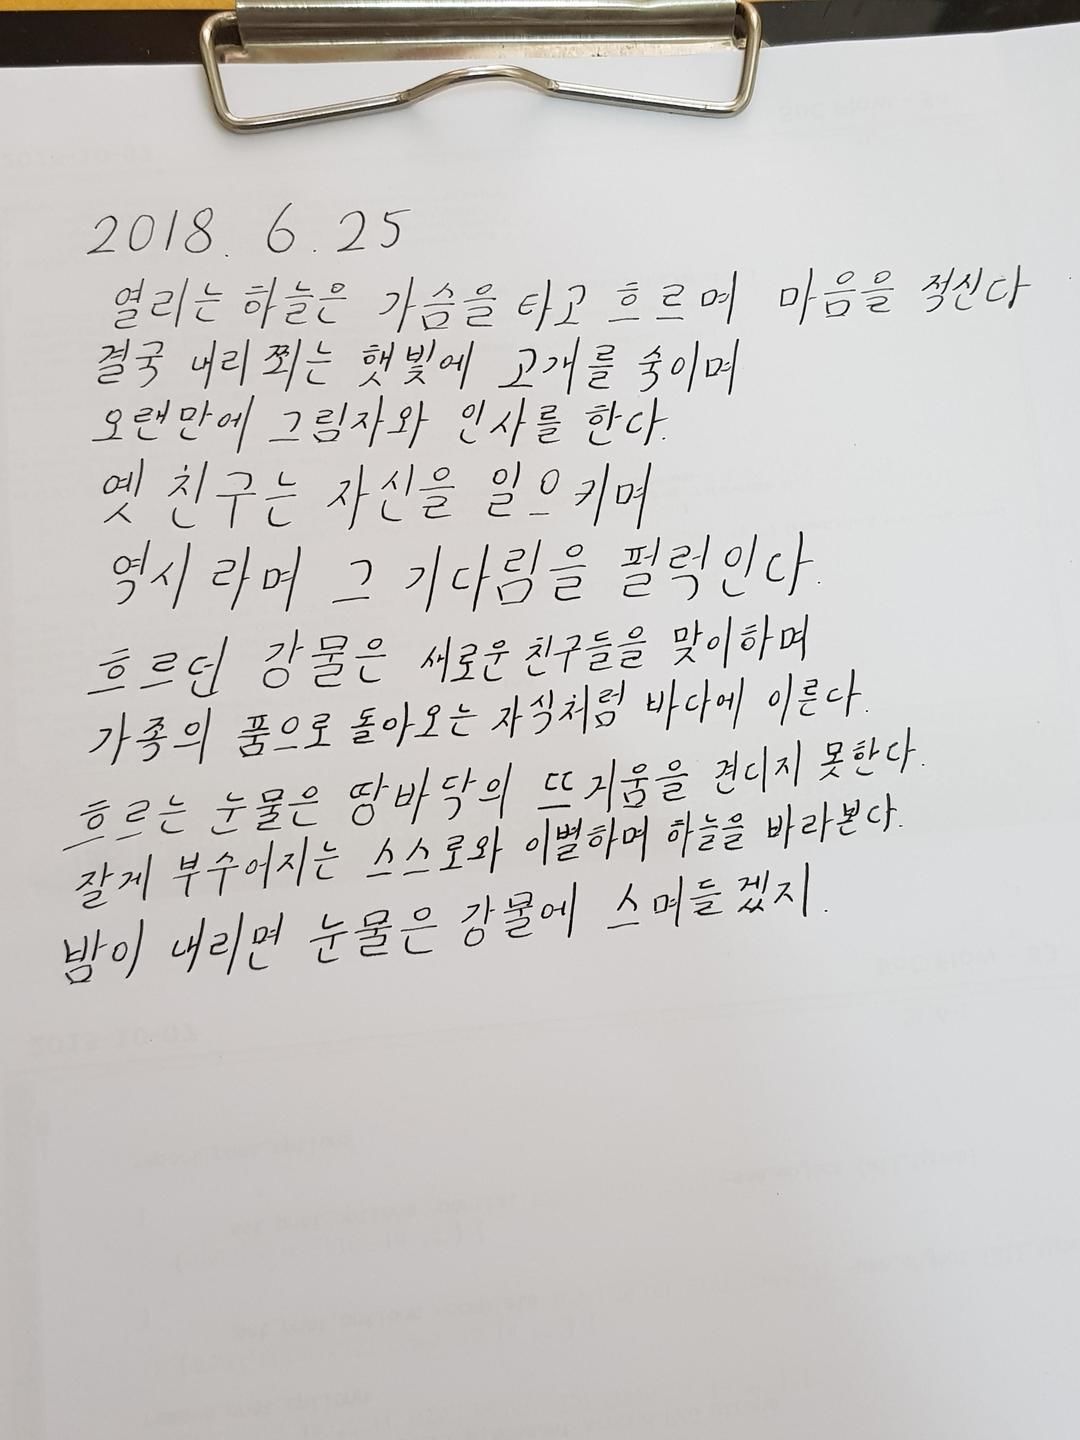 2018. 6. 25
열리는 하늘은 가슴을 타고 흐르며 마음을 적신다
결국 내리쬐는 햇빛에 고개를 숙이며
오랜만에 그림자와 인사를 한다.
옛 친구는 자신을 일으키며
역시 라며 그 기다림을 펄럭인다.
흐르던 강물은 새로운 친구들을 맞이하며
가족의 품으로 돌아오는 자식처럼 바다에 이른다.
흐르는 눈물은 땅바닥의 뜨거움을 견디지 못한다.
잘게 부수어지는 스스로와 이별하며 하늘을 바라본다.
밤이 내리면 눈물은 강물에 스며들겠지.